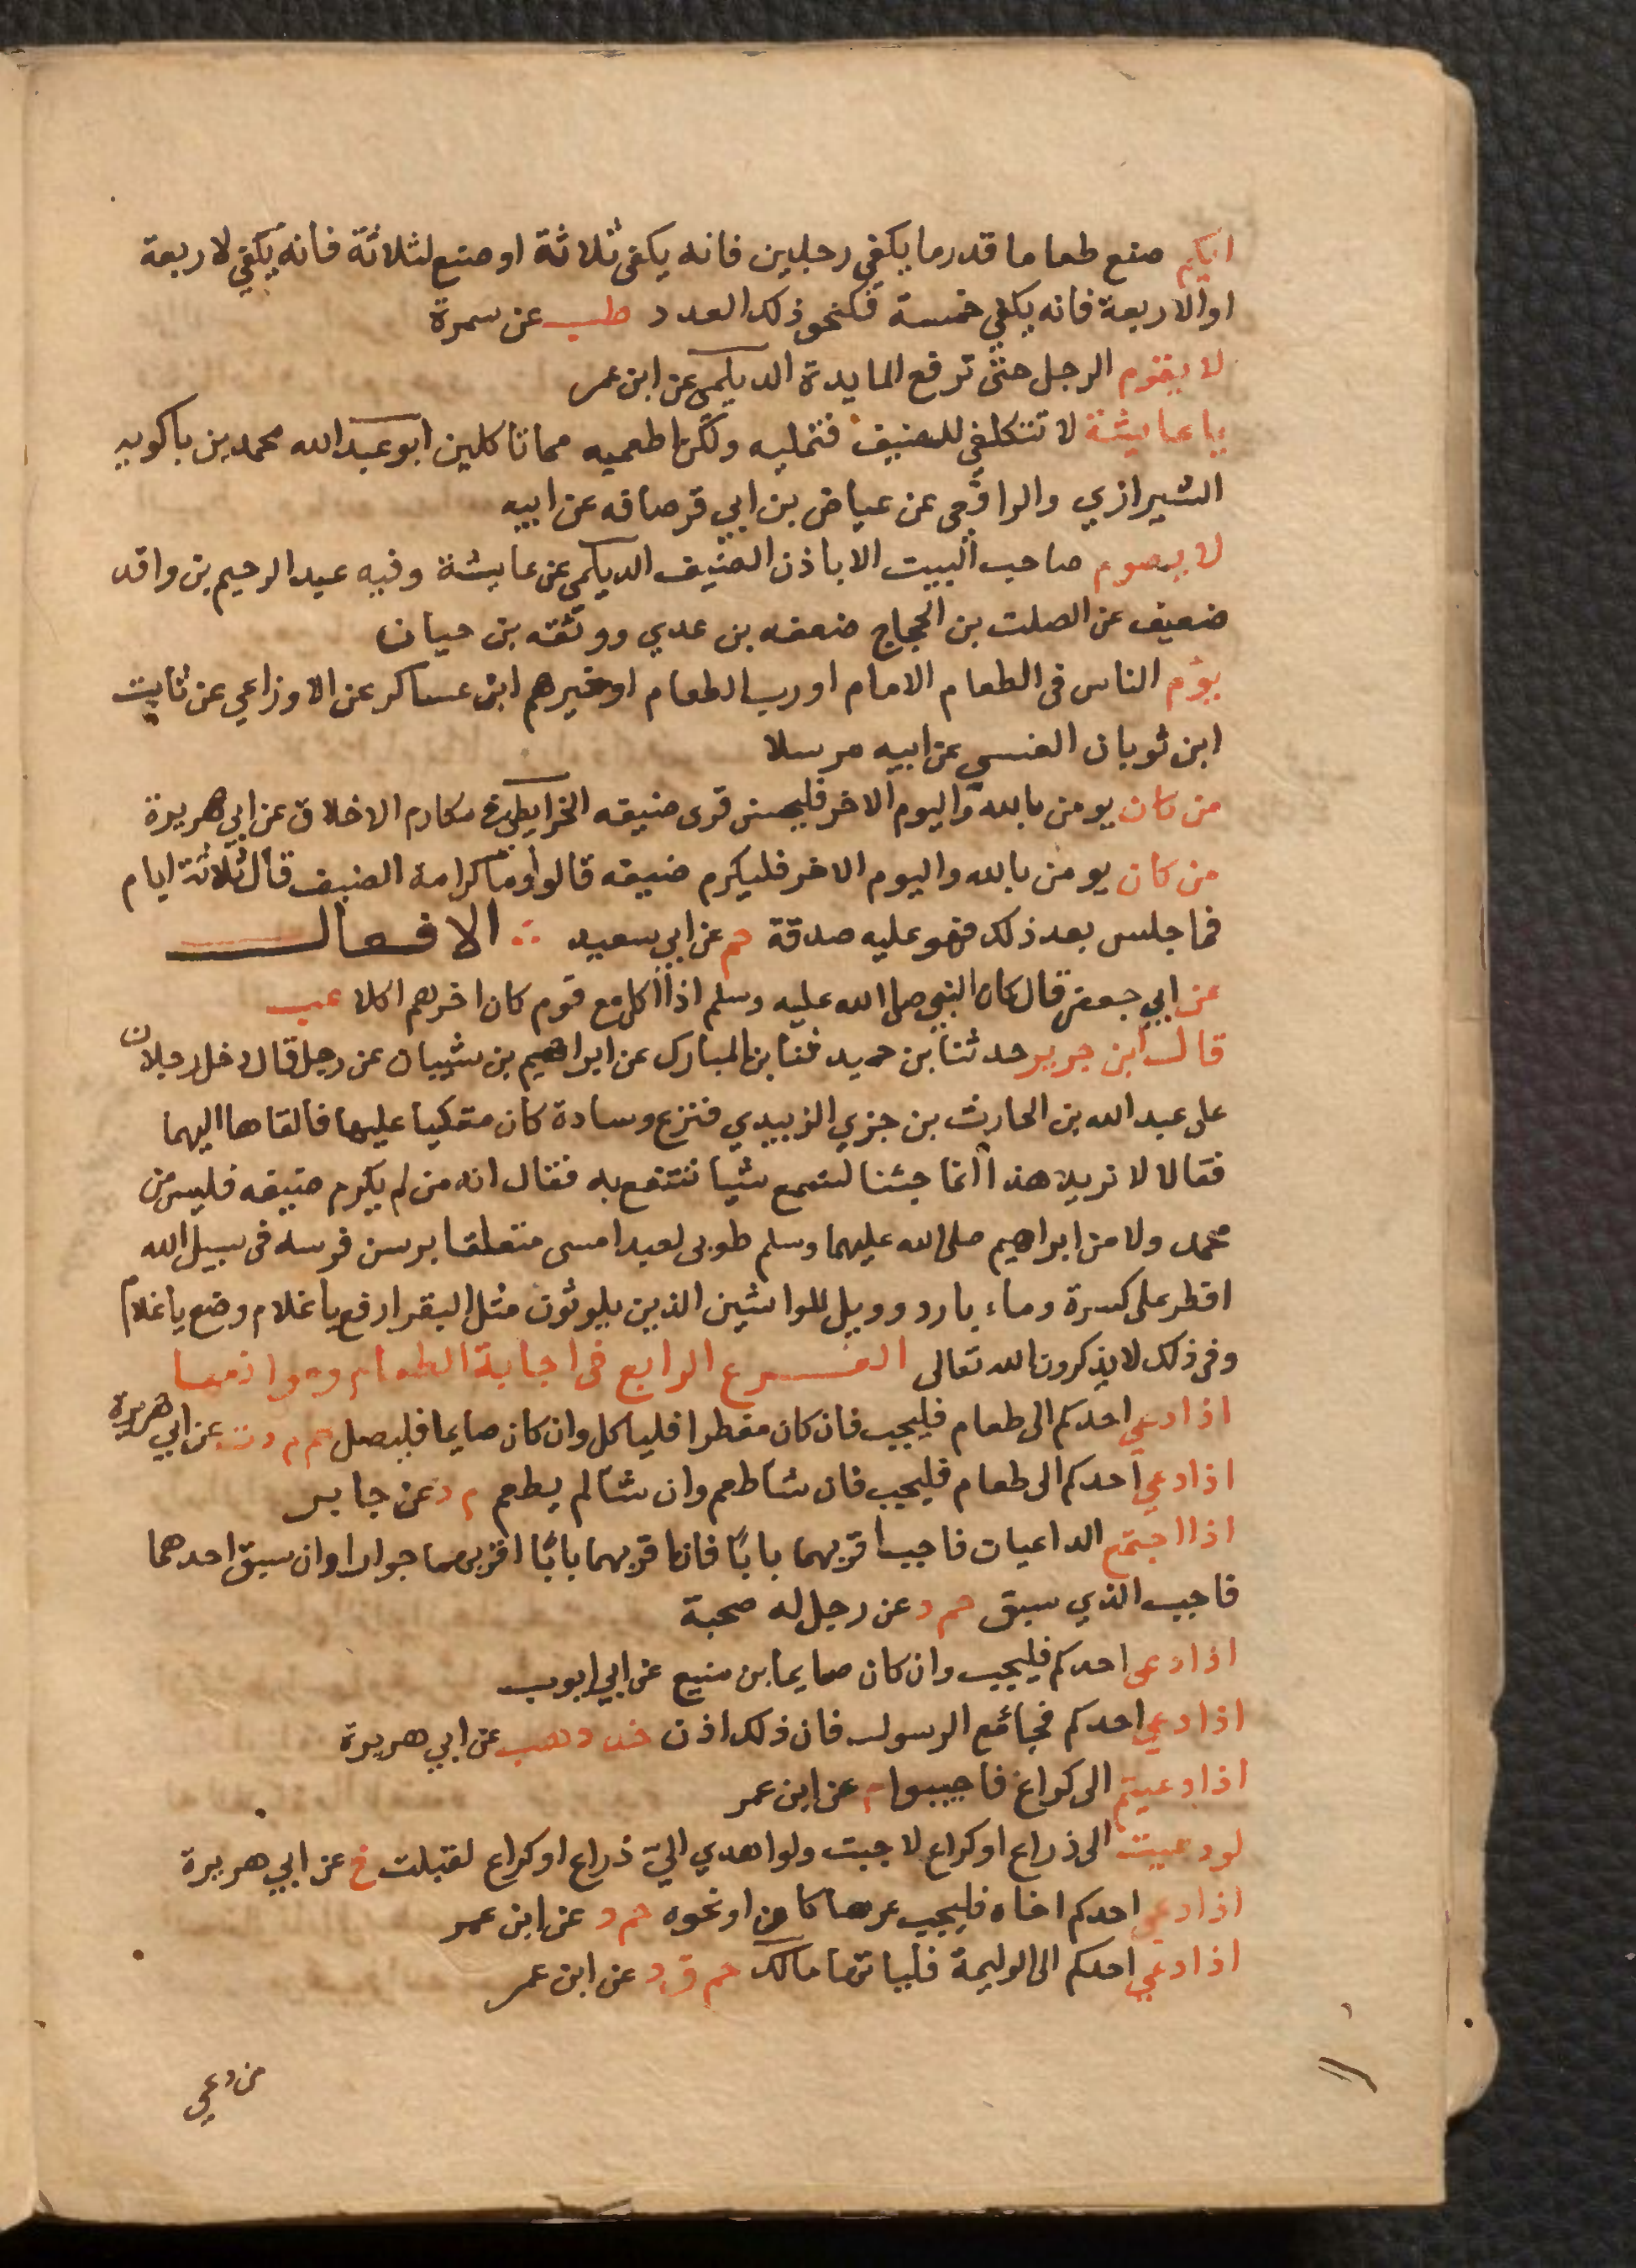 ايكم صنع طعاما قدر ما يكفي رجلين فانه يكفي ثلاثة او صنع لثلاثة فانه يكفي لاربعة
او الاربعة فانه يكفي خمسة فكنحو ذلك العدد طب عن سمرة
لا يقوم الرجل حتى ترفع المايدة الديلمي عن ابن عمر
يا عايشة لا تتكلفي للضيف فتمليه ولكن اطعميه مما تاكلين ابو عبد الله محمد بن باكويه
الشيرازي والرافعي عن عياض بن ابي قرصافه عن ابيه
لا يصوم صاحب البيت الا باذن الضيف الديلمي عن عايشة وفيه عبد الرحيم بن واقد
ضعيف عن الصلت بن الحجاج ضعفه بن عدي ووثقه بن حيان
يؤم الناس في الطعام الامام او رب الطعام او خيرهم ابن عساكر عن الاوزاعي عن ثابت
ابن ثوبان العنسي عن ابيه مرسلا
من كان يومن بالله واليوم الاخر فليحسن قرى ضيفه الخرايطي في مكارم الاخلاق عن ابي هريرة
من كان يومن بالله واليوم الاخر فليكرم ضيفه قالوا وما كرامة الضيف قال ثلاثة ايام
فما جلس بعد ذلك فهو عليه صدقة حم عن ابي سعيد الافعال
عن ابي جعفر قال كان النبي صلى الله عليه وسلم اذا اكل مع قوم كان اخرهم اكلا عب
قال ابن جرير حدثنا بن حميد ثنا بن المبارك عن ابراهيم بن شيبان عن رجل قال دخل رجلان
على عبد الله بن الحارث بن جزي الزبيدي فنزع وسادة كان متكيا عليها فالقاها اليهما
فقالا لا نريد هذا انما جئنا لنسمع شيا ننتفع به فقال انه من لم يكرم ضيفه فليس من
محمد ولا من ابراهيم صلى الله عليهما وسلم طوبى لعبد امسى متعلقا برسن فرسه في سبيل الله
افطر على كسرة وماء بارد وويل للواشين الذين يلوثون مثل البقر ارفع يا غلام وضع يا غلام
وفي ذلك لا يذكرون الله تعالى الفرع الرابع في اجابة الطعام وموانعها
اذا دعي احدكم الى طعام فليجب فان كان مفطرا فلياكل وان كان صايما فليصل حم م د ت عن ابي هريرة
اذا دعي احدكم الى طعام فليجب فان شا طعم وان شا لم يطعم م د عن جابر
اذا اجتمع الداعيان فاجب اقربهما بابا فان اقربهما بابا اقربهما جوارا وان سبق احدهما
فاجب الذي سبق حم د عن رجل له صحبة
اذا دعي احدكم فليجب وان كان صايما بن منيع عن ابي ايوب
اذا دعي احدكم فجا مع الرسول فان ذلك اذن خد د هب عن ابي هريرة
اذا دعيتم الى كراع فاجيبوا م عن ابن عمر
لو دعيت الى ذراع او كراع لاجبت ولو اهدي الي ذراع او كراع لقبلت خ عن ابي هريرة
اذا دعي احدكم اخاه فليجب عرسا كان او نحوه حم د عن ابن عمر
اذا دعي احدكم الى الوليمة فلياتها مالك حم ق د عن ابن عمر
من دعي